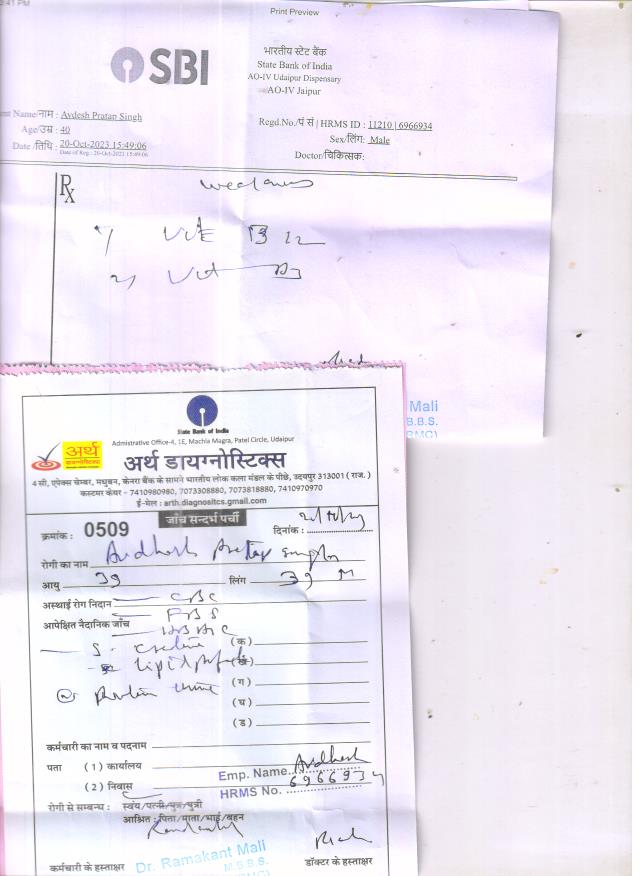 3:41 PM
Print Preview
SBI
भारतीय स्टेट बैंक
State Bank of India
AO-IV Udaipur Dispensary
AO-IV Jaipur
Name/नाम : Avdesh Pratap Singh
Regd.No./पं सं | HRMS ID : 11210 | 6966934
Age/उम्र : 40
Sex/लिंग: Male
Date /तिथि : 20-Oct-2023 15:49:06
Date of Reg : 20-Oct-2023 15:49:06
Doctor/चिकित्सक:
Rx
Weakness
1) Vit B 12
2) Vit D3
Mali
B.B.S.
State Bank of India
Admistrative Office-4, 1E, Machla Magra, Patel Circle, Udaipur
अर्थ
डायग्नोस्टिक्स
अर्थ डायग्नोस्टिक्स
4 सी, एपेक्स चेम्बर, मधुबन, केनरा बैंक के सामने भारतीय लोक कला मंडल के पीछे, उदयपुर 313001 ( राज. )
कस्टमर केयर - 7410980980, 7073308880, 7073818880, 7410970970
ई-मेल : arth.diagnositcs.gmail.com
जाँच सन्दर्भ पर्ची
क्रमांक : 0509
दिनांक :
रोगी का नाम Avdhesh Pratap Singh
आयु 39 लिंग 39 M
अस्थाई रोग निदान CBC
FBS
आपेक्षित नैदानिक जाँच
HBA1C
S. Creatine (क)
Lipid profile (ख)
(ग)
Protein urine
(घ)
(ड)
कर्मचारी का नाम व पदनाम
पता ( 1 ) कार्यालय
Emp. Name Avdhesh
( 2 ) निवास
HRMS No. 6966934
रोगी से सम्बन्ध : स्वंय/पत्नी/पुत्र/पुत्री
आश्रित : पिता/माता/भाई/बहन
Dr. Ramakant Mali
M.B.B.S.
कर्मचारी के हस्ताक्षर
डॉक्टर के हस्ताक्षर